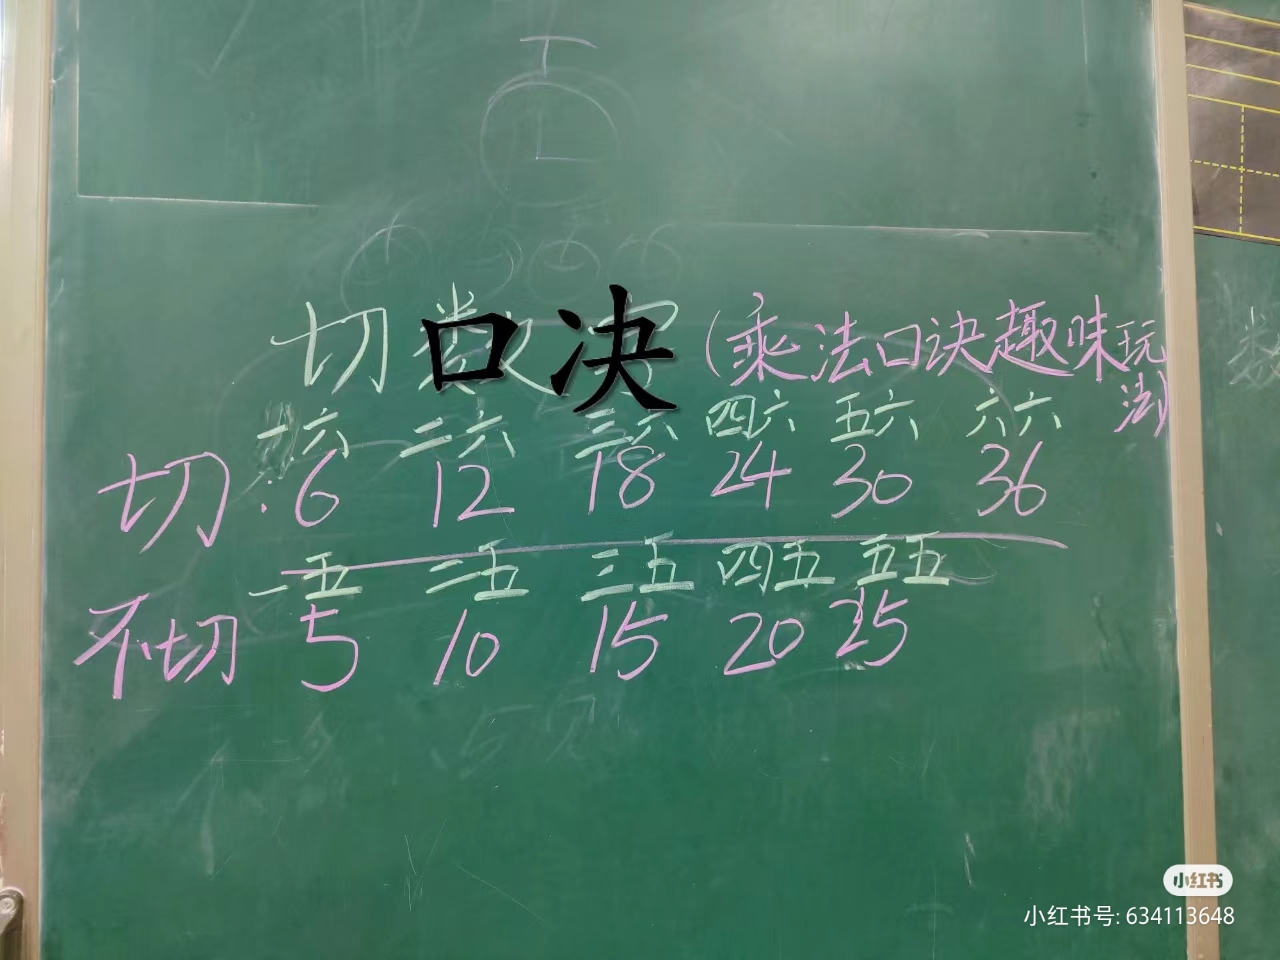 切数
口决
(乘法口诀趣味玩法)
一六 二六 三六 四六 五六 六六
切: 6 12 18 24 30 36
一五 二五 三五 四五 五五
不切 5 10 15 20 25
小红书
小红书号: 634113648